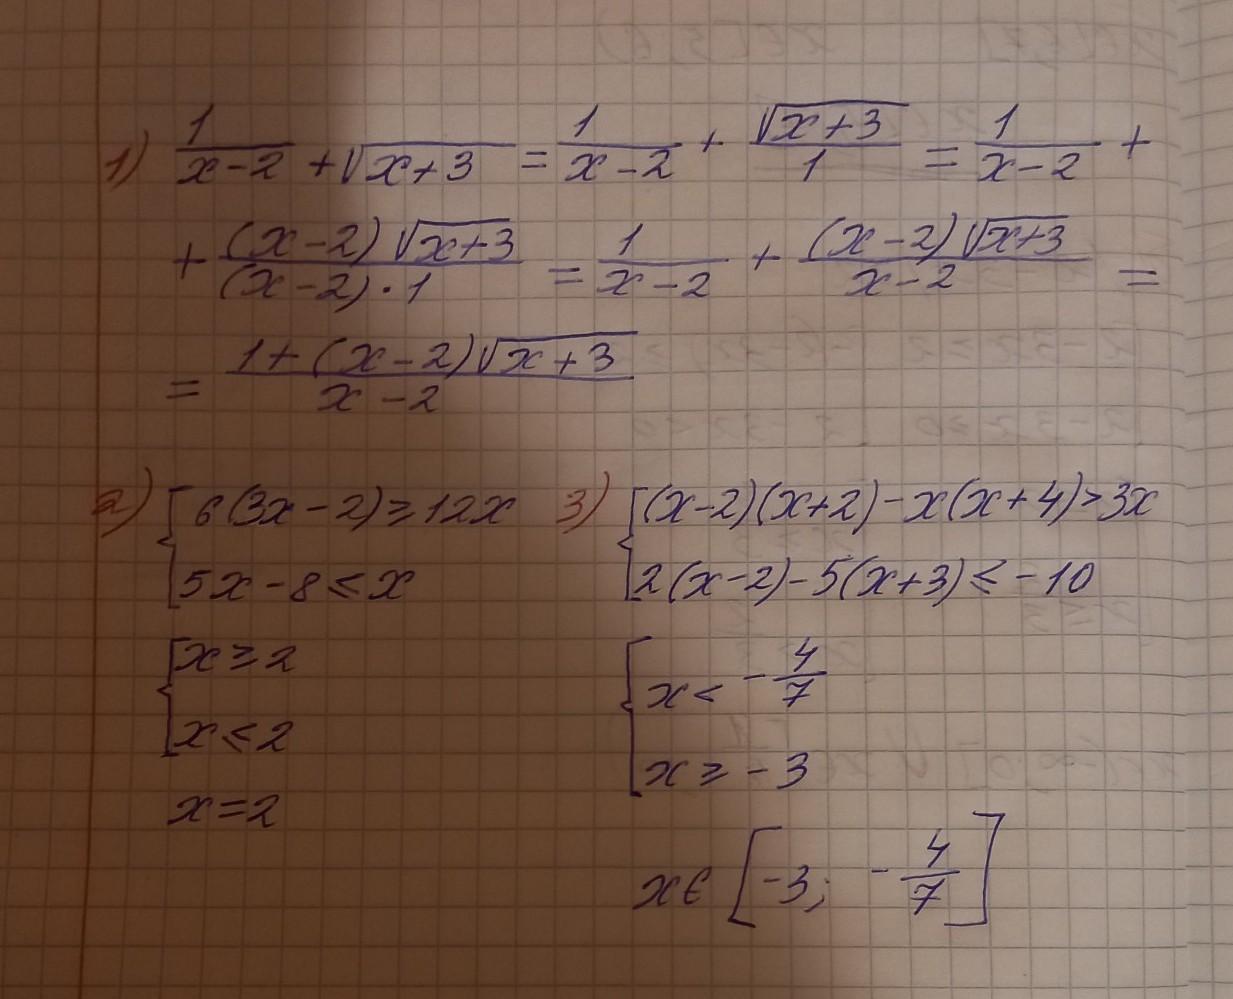 1) 1/(x-2) + √(x+3) = 1/(x-2) + √(x+3)/1 = 1/(x-2) +
+ (x-2)√(x+3)/((x-2)·1) = 1/(x-2) + (x-2)√(x+3)/(x-2) =
= (1+(x-2)√(x+3))/(x-2)
2) { 6(3x-2) ≥ 12x
5x-8 ≤ x
{ x ≥ 2
x ≤ 2
x=2
3) { (x-2)(x+2) - x(x+4) > 3x
2(x-2) - 5(x+3) ≤ -10
{ x < -4/7
x ≥ -3
x ∈ [-3; -4/7]